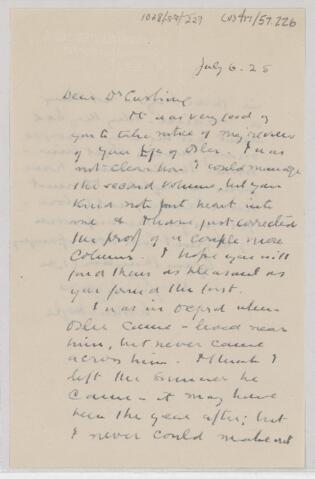 1028/59/229 CUS417/57.226
July 6 - 25
Dear Dr Cushing
It was very good of
you to take notice of my review
of your Life of Osler. I was
not clear how I could manage
the second volume, but your
kind note put heart into
me & I have just corrected
the proof of a couple more
columns. I hope you will
find them as pleasant as
you found the first.
I was in Oxford when
Osler came - lived near
him, but never came
across him. I think I
left the summer he
came - it may have
been the year after; but
I never could make out